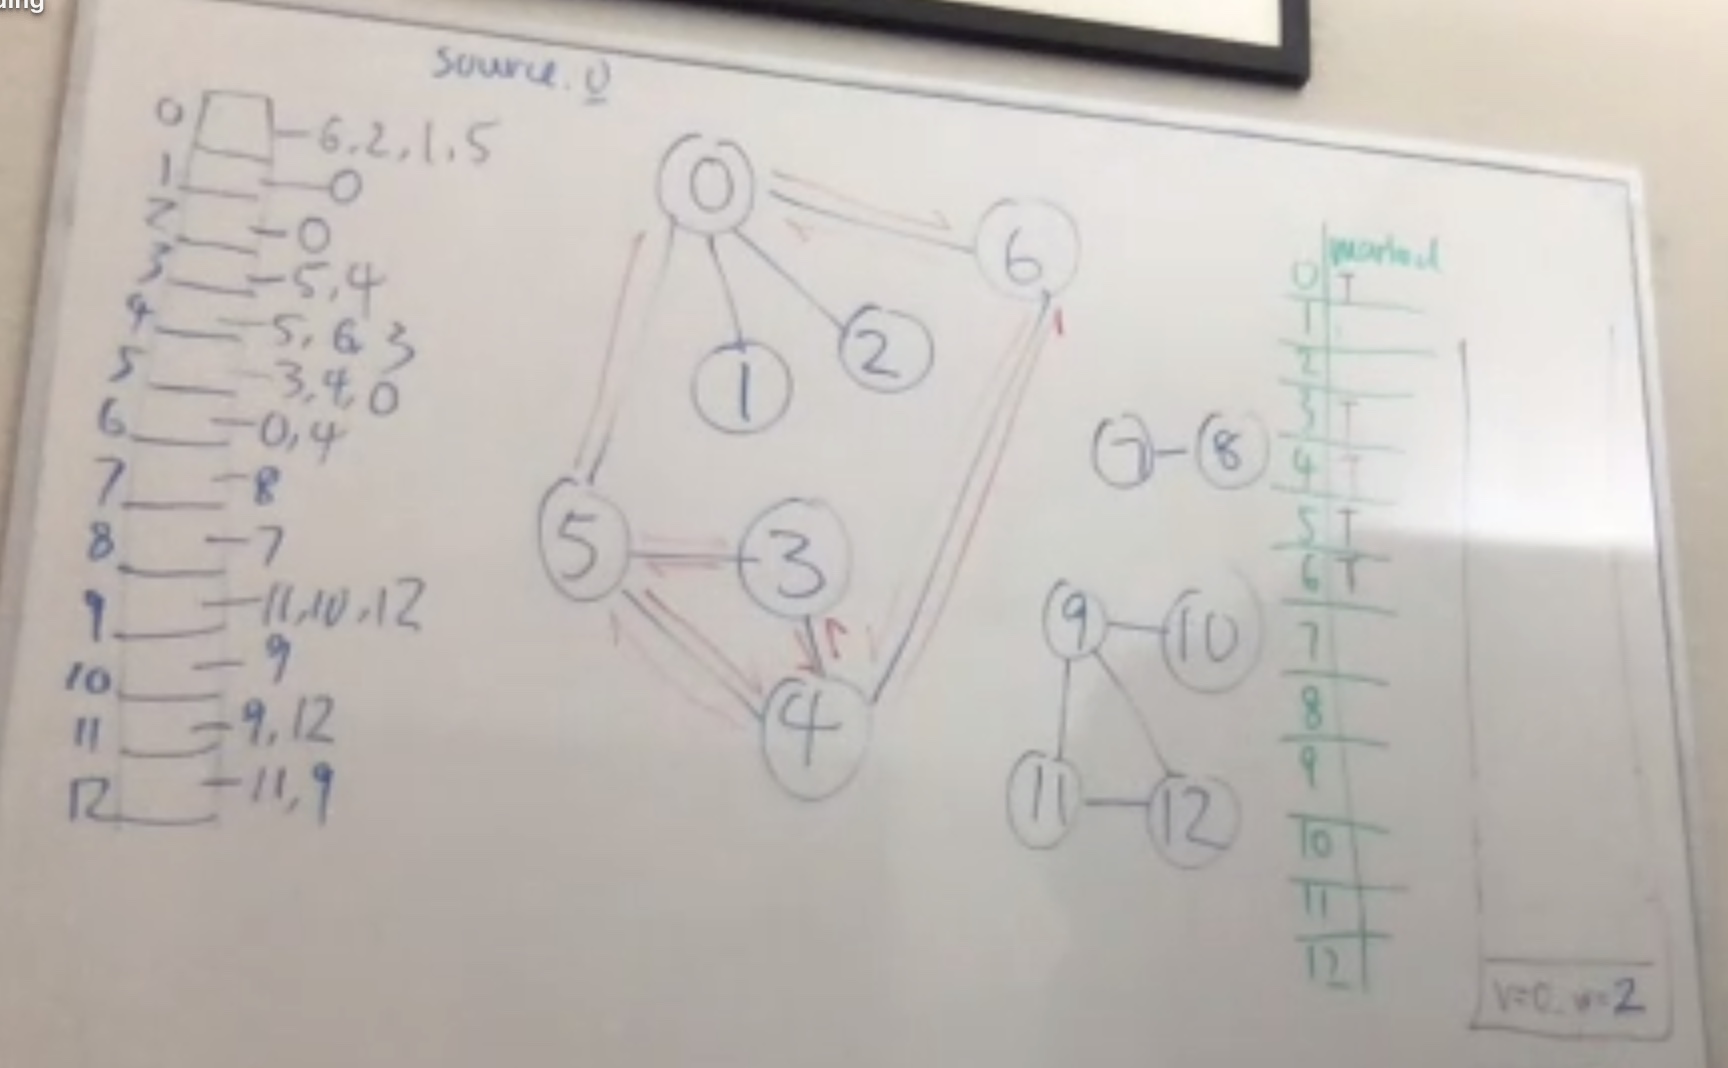 ding
source. 0
0 6,2,1,5
1 0
2 0
3 5,4
4 5,6,3
5 3,4,0
6 0,4
7 8
8 7
9 11,10,12
10 9
11 9,12
12 11,9
0
6
1
2
5
3
4
7 8
9 10
11 12
marked
0 T
1
2
3 T
4 T
5 T
6 T
7
8
9
10
11
12
v=0. w=2